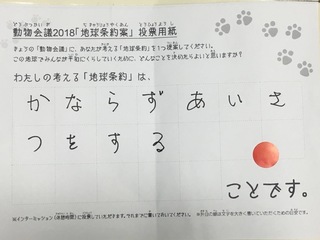 動物会議2018「地球条約案」投票用紙
きょうの「動物会議」に、あなたが考える「地球条約」を1つ提案してください。
この地球でみんなが平和にくらしていくために、どんなことを決めたらよいと思いますか?
わたしの考える「地球条約」は、
かならずあいさ
つをする
ことです。